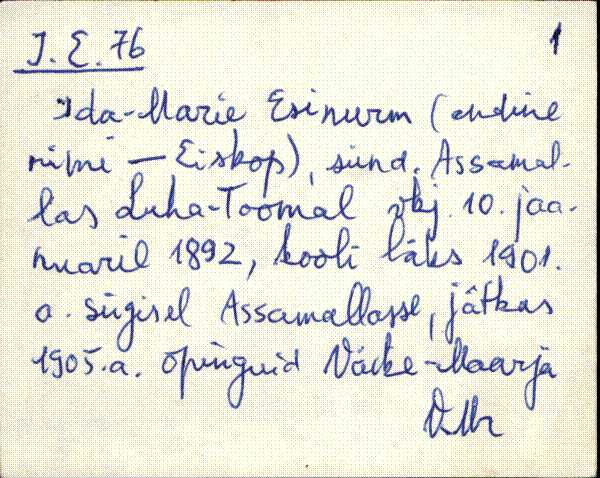 J. E. 76 1
Ida-Marie Esinurm (endine
nimi — Eiskop), sünd. Assamal-
las Luha-Toomal vkj. 10. jaa-
nuaril 1892, kooli läks 1901.
a. sügisel Assamallasse, jätkas
1905. a. õpinguid Väike-Maarja